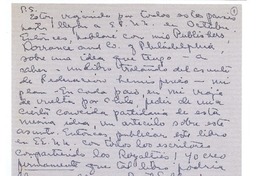 P.S. ①
Estoy viajando por todos estos paises
hasta llegar a EE.UU. en Octubre.
Entonces, hablaré con mis Publishers
Dorrance and Co. of Philadelphia,
sobre una idea que tengo — a
saber — nuestro tratando del asunto
de Federación hemisferica — mi
plan — En cada país, en mi viaje
de vuelta por Chile, pedir de mi
cierta conocida partidaria de esta
misma idea, un articulo sobre este
asunto. Entonces, publicar este libro
en EE.UU. con todos los escritores
compartiendo los Royalties! Yo creo
que tal libro podria